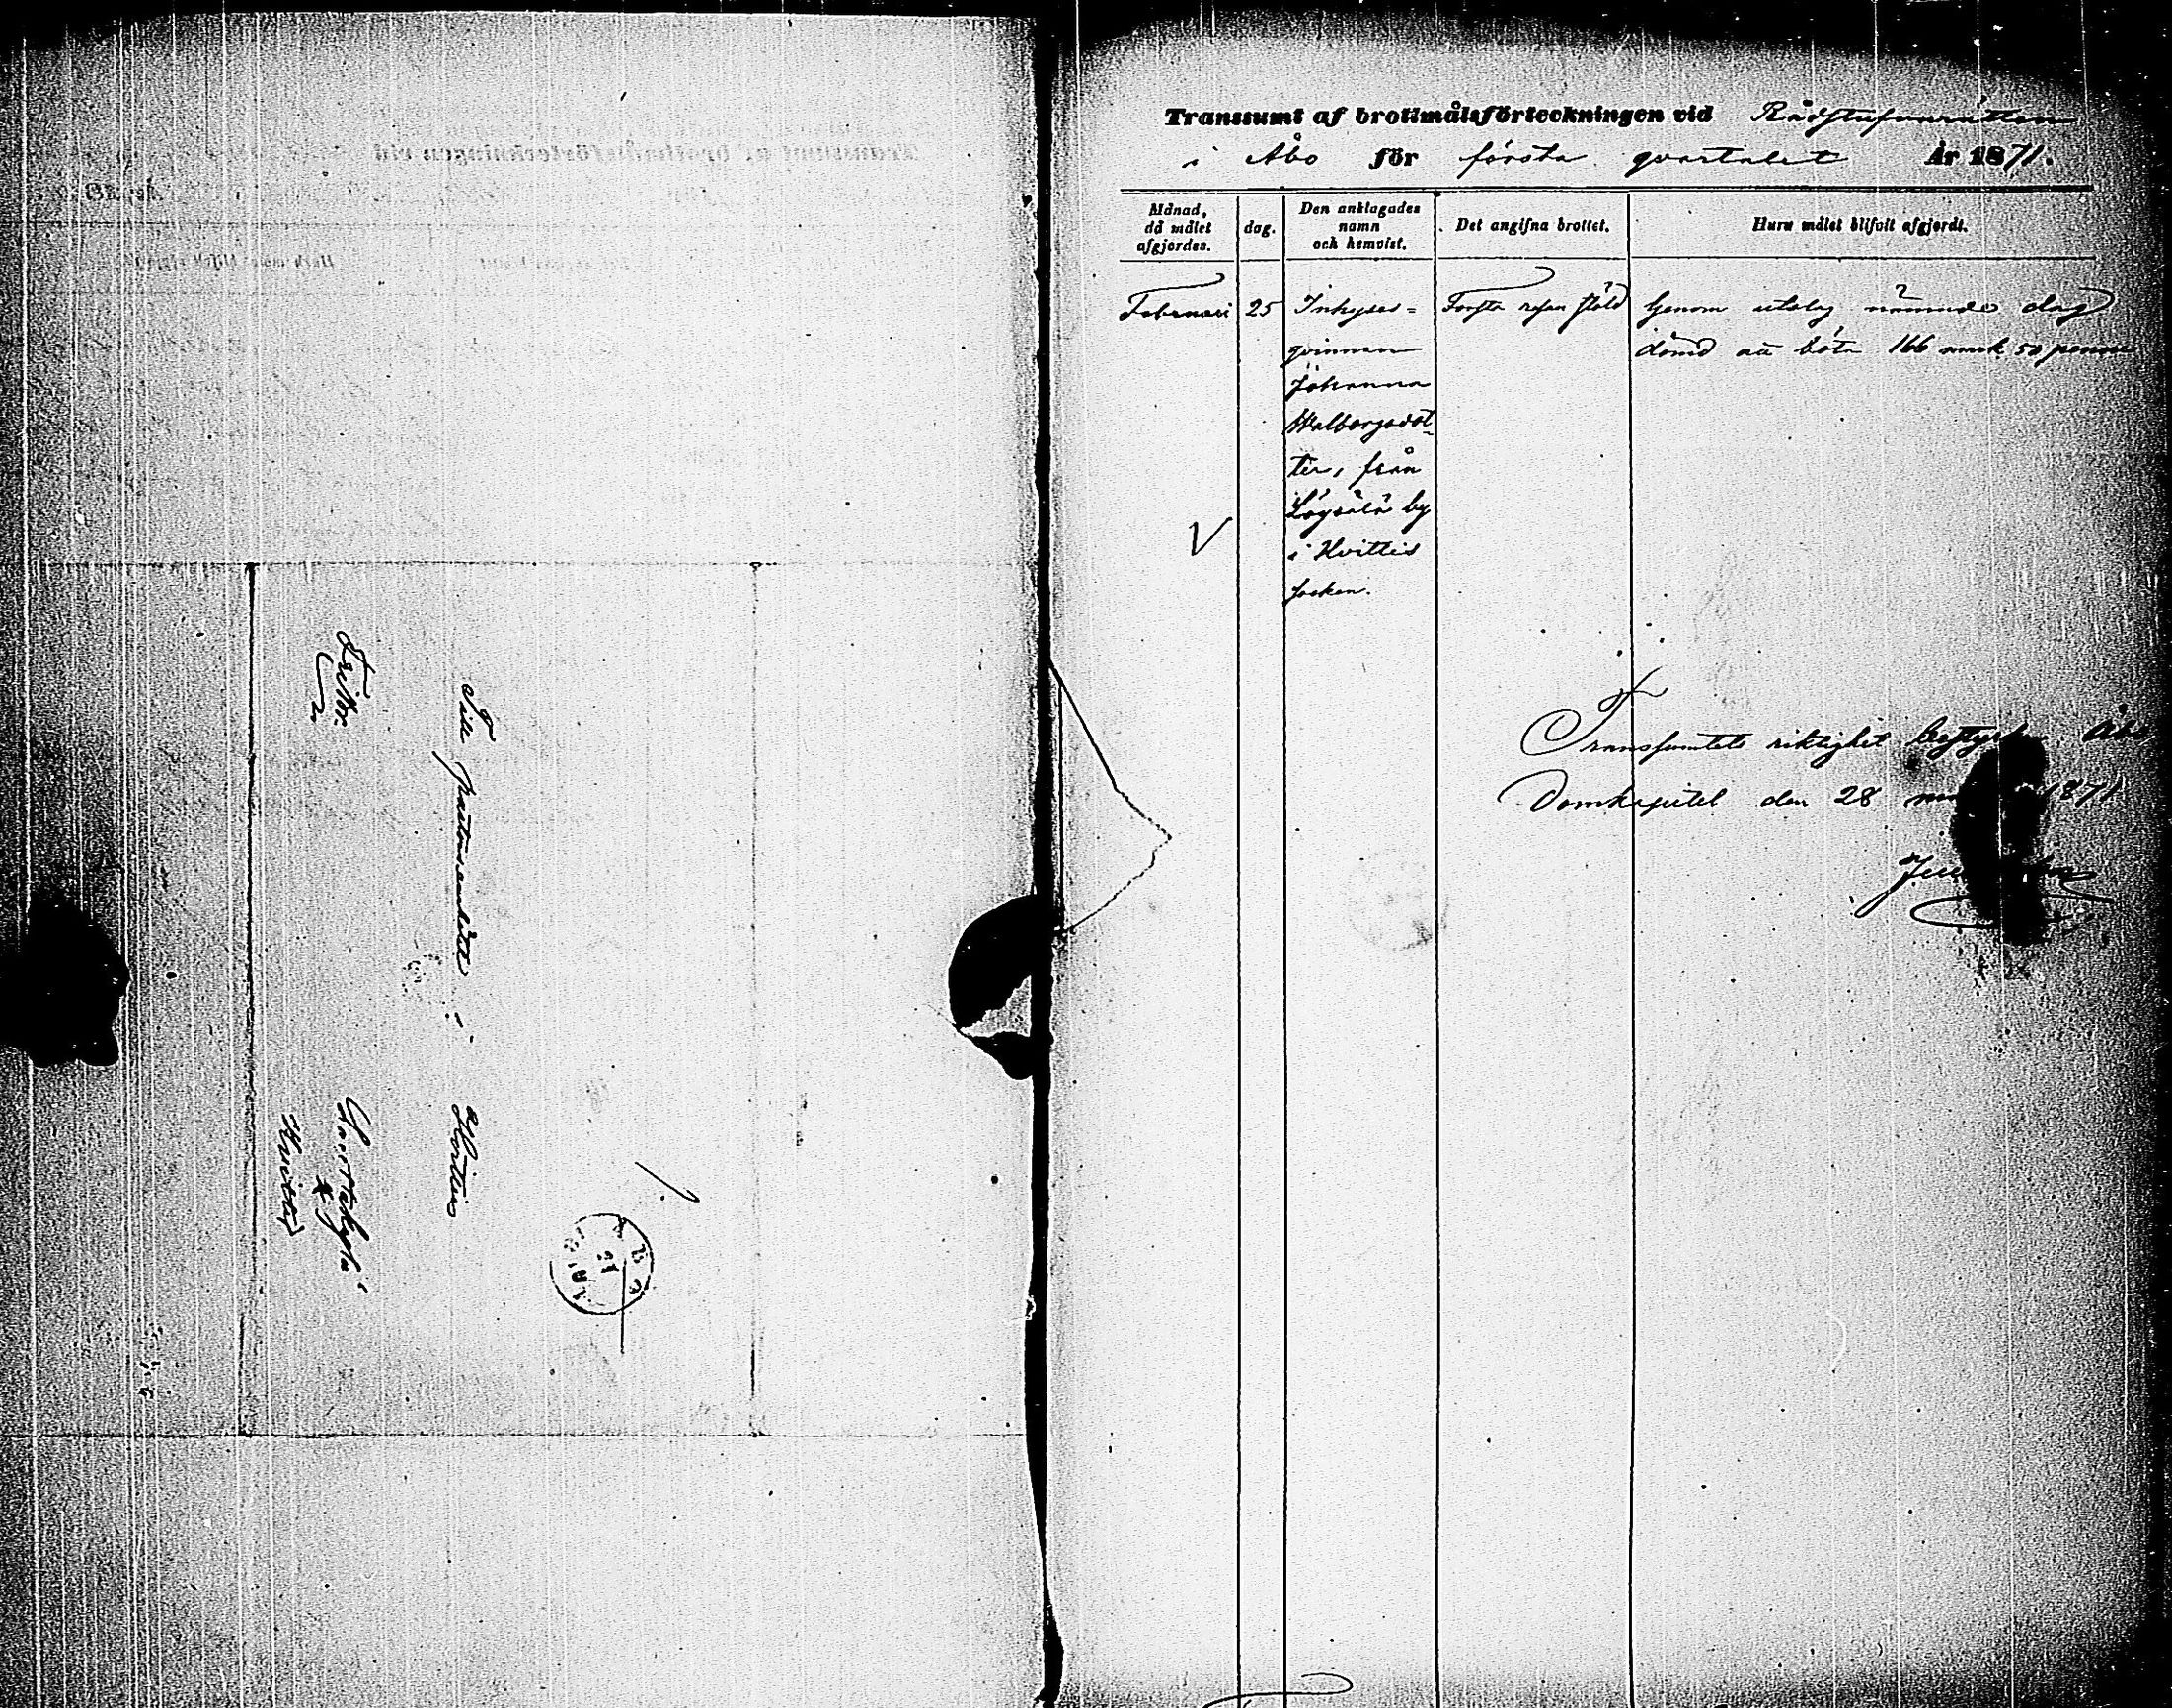 Till pastorsembetet i Hvittis
Fribr.
Lauttakylä
Huittis
ABO
Transsumt af brottmålsförteckningen vid Rådstufvurätten
i Åbo för första qvartalet År 1871.
Månad, då målet afgjordes.
dag.
Den anklagades namn och hemvist.
Det angifna brottet.
Huru målet blifvit afgjordt.
Februari 25 Inhyses= Första resan stöld Genom utslag nämnde dag
qvinnan dömd att böta 166 mark 50 penni
Johanna
Walborgsdot-
ter, från
Löysälä by
i Hvittis
socken.
V
Transsumtets riktighet betygar Åbo
Domkapitel den 28 1871